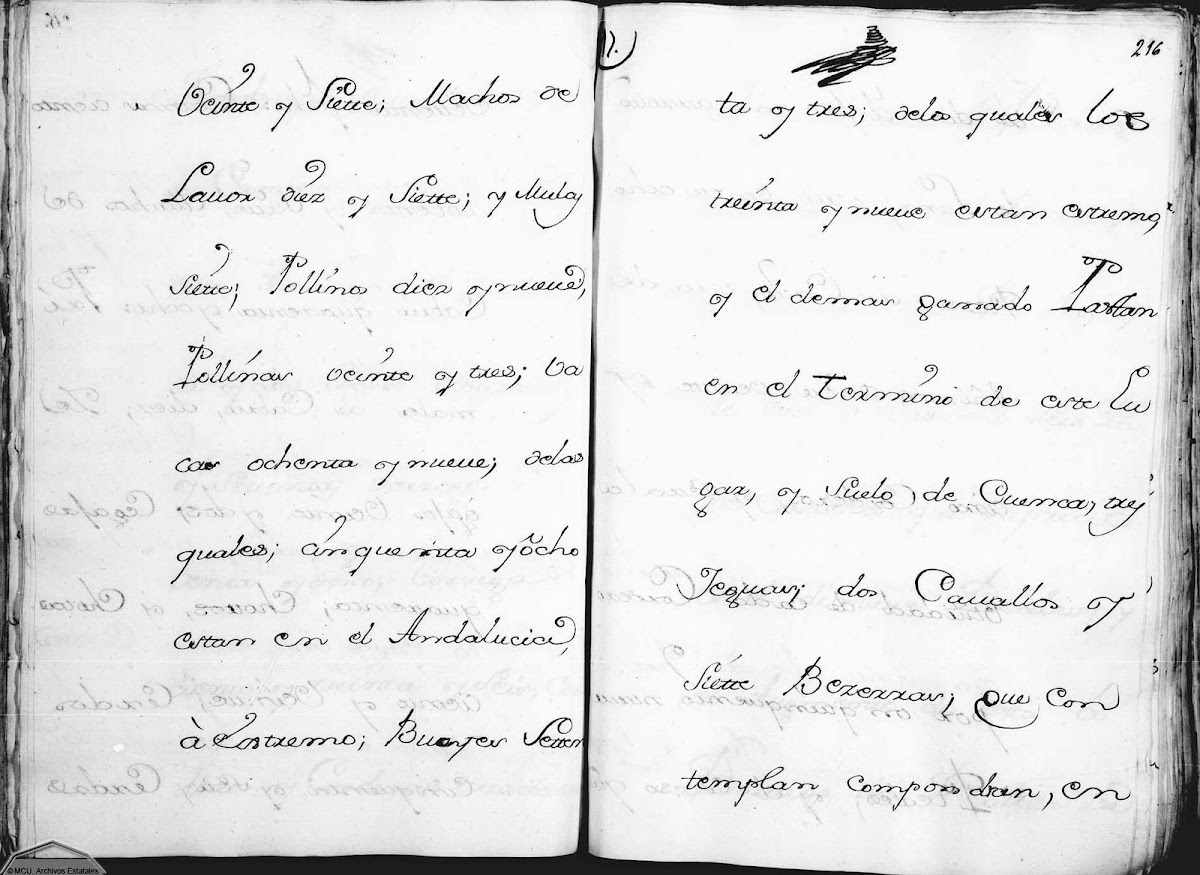 Veínte y Siette; Machos de
Lauor diez y Siette; y Mulas
siette; Pollinos diez y nueue,
Pollinas veinte y tres; Va
cas ochenta y nueue; delas
quales; cinquenta y ocho
estan en el Andalucia,
à Estremo; Bueyes Setten
216
ta y tres; delos quales los
treinta y nueue estan estremo,
y el demas ganado Pastan
en el Termino de este Lu
gar, y suelo, de Cuenca, trej
Yeguas; dos Cauallos y
siette Bezerras; que con
templan compondran, en
© MCU. Archivos Estatales